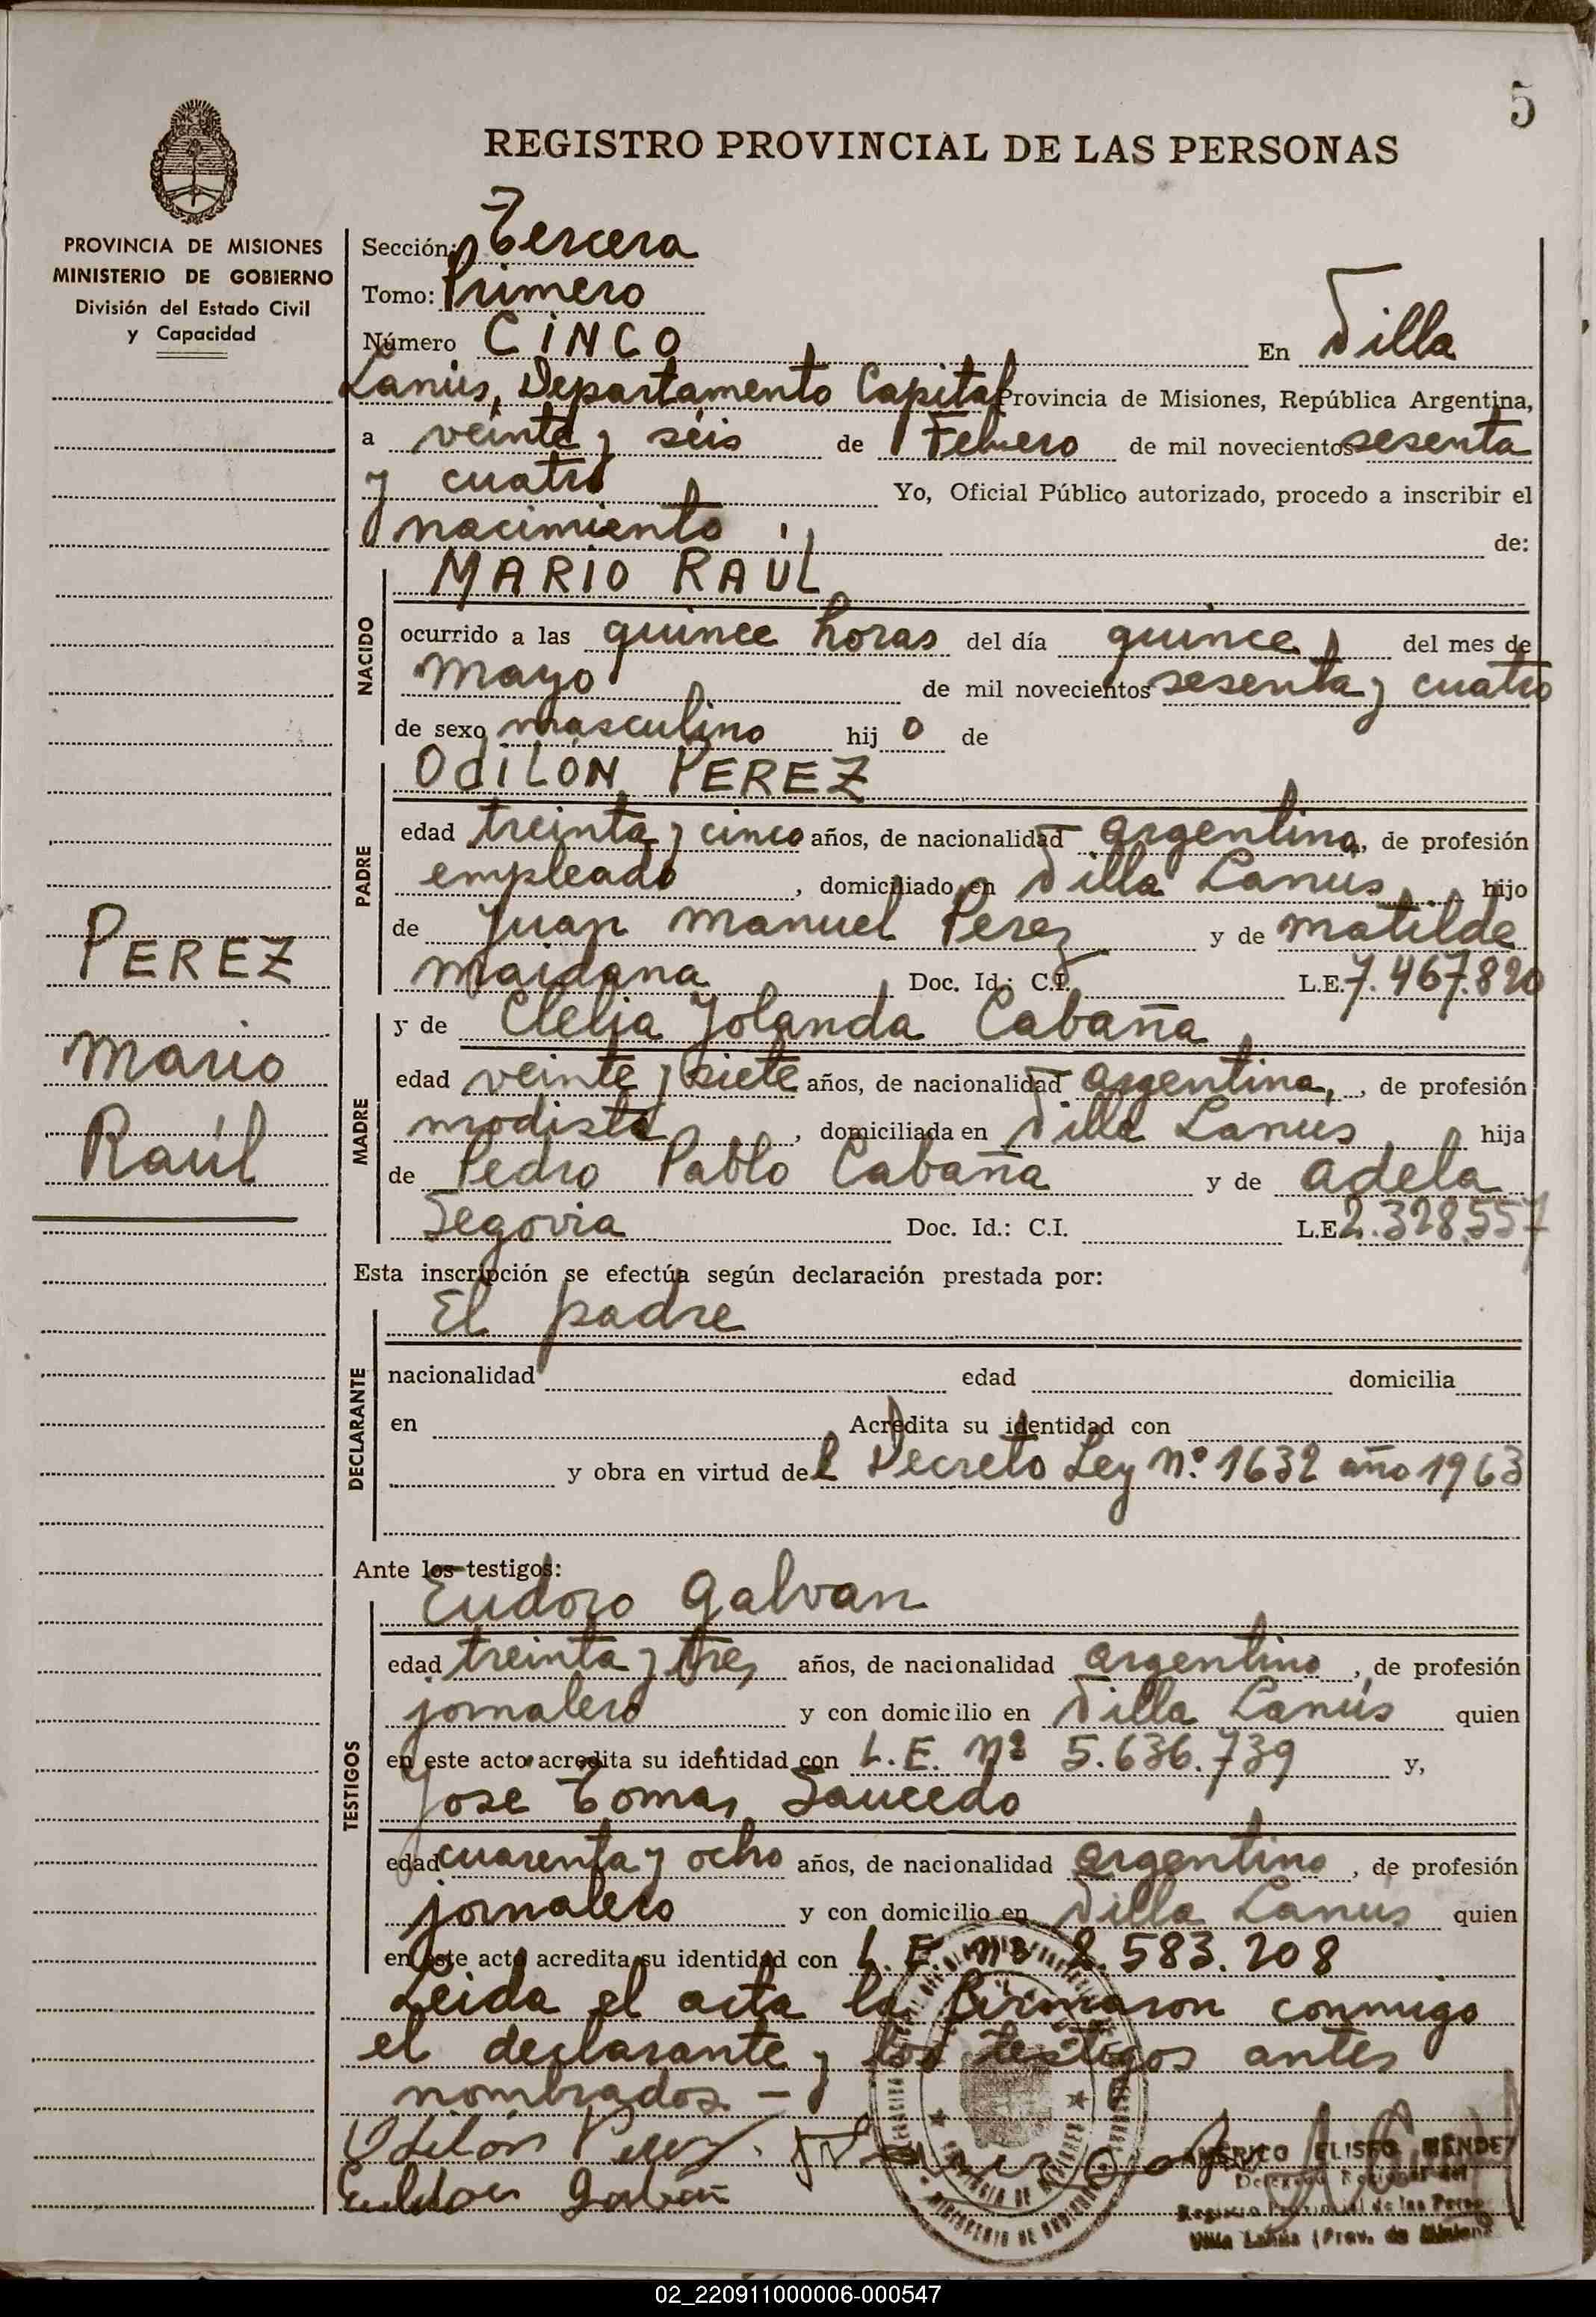 5
REGISTRO PROVINCIAL DE LAS PERSONAS
PROVINCIA DE MISIONES
MINISTERIO DE GOBIERNO
División del Estado Civil
y Capacidad
Sección: Tercera
Tomo: Primero
Número CINCO En Villa
Lanús, Departamento Capital Provincia de Misiones, República Argentina,
a veinte y seis de Febrero de mil novecientos sesenta
y cuatro Yo, Oficial Público autorizado, procedo a inscribir el
nacimiento de:
MARIO RAÚL
NACIDO
ocurrido a las quince horas del día quince del mes de
Mayo de mil novecientos sesenta y cuatro
de sexo masculino hij o de
ODILÓN PEREZ
PADRE
edad treinta y cinco años, de nacionalidad argentina, de profesión
empleado, domiciliado en Villa Lanus hijo
de Juan Manuel Perez y de Matilde
Maidana Doc. Id.: C.I. L.E. 7.467.820
PEREZ
Mario
Raúl
y de Clelia Yolanda Cabaña
MADRE
edad veinte y siete años, de nacionalidad argentina, , de profesión
modista, domiciliada en Villa Lanus hija
de Pedro Pablo Cabaña y de Adela
Segovia Doc. Id.: C.I. L.E. 2.328.557
Esta inscripción se efectúa según declaración prestada por:
El padre
DECLARANTE
nacionalidad edad domicilia
en Acredita su identidad con
y obra en virtud del Decreto Ley Nº 1632 año 1963
Ante los testigos:
Eudoro Galvan
TESTIGOS
edad treinta y tres años, de nacionalidad argentino, de profesión
jornalero y con domicilio en Villa Lanús quien
en este acto acredita su identidad con L.E. Nº 5.636.739 y,
Jose Tomas Saucedo
edad cuarenta y ocho años, de nacionalidad argentino, de profesión
jornalero y con domicilio en Villa Lanus quien
en este acto acredita su identidad con L.E. Nº 583.208
Leida el acta la firmaron conmigo
el declarante y los testigos antes
nombrados. —
Odilon Perez
AMÉRICO ELISEO MÉNDEZ
Registro Provincial de las
Villa Lanús (Prov. de
02_220911000006-000547